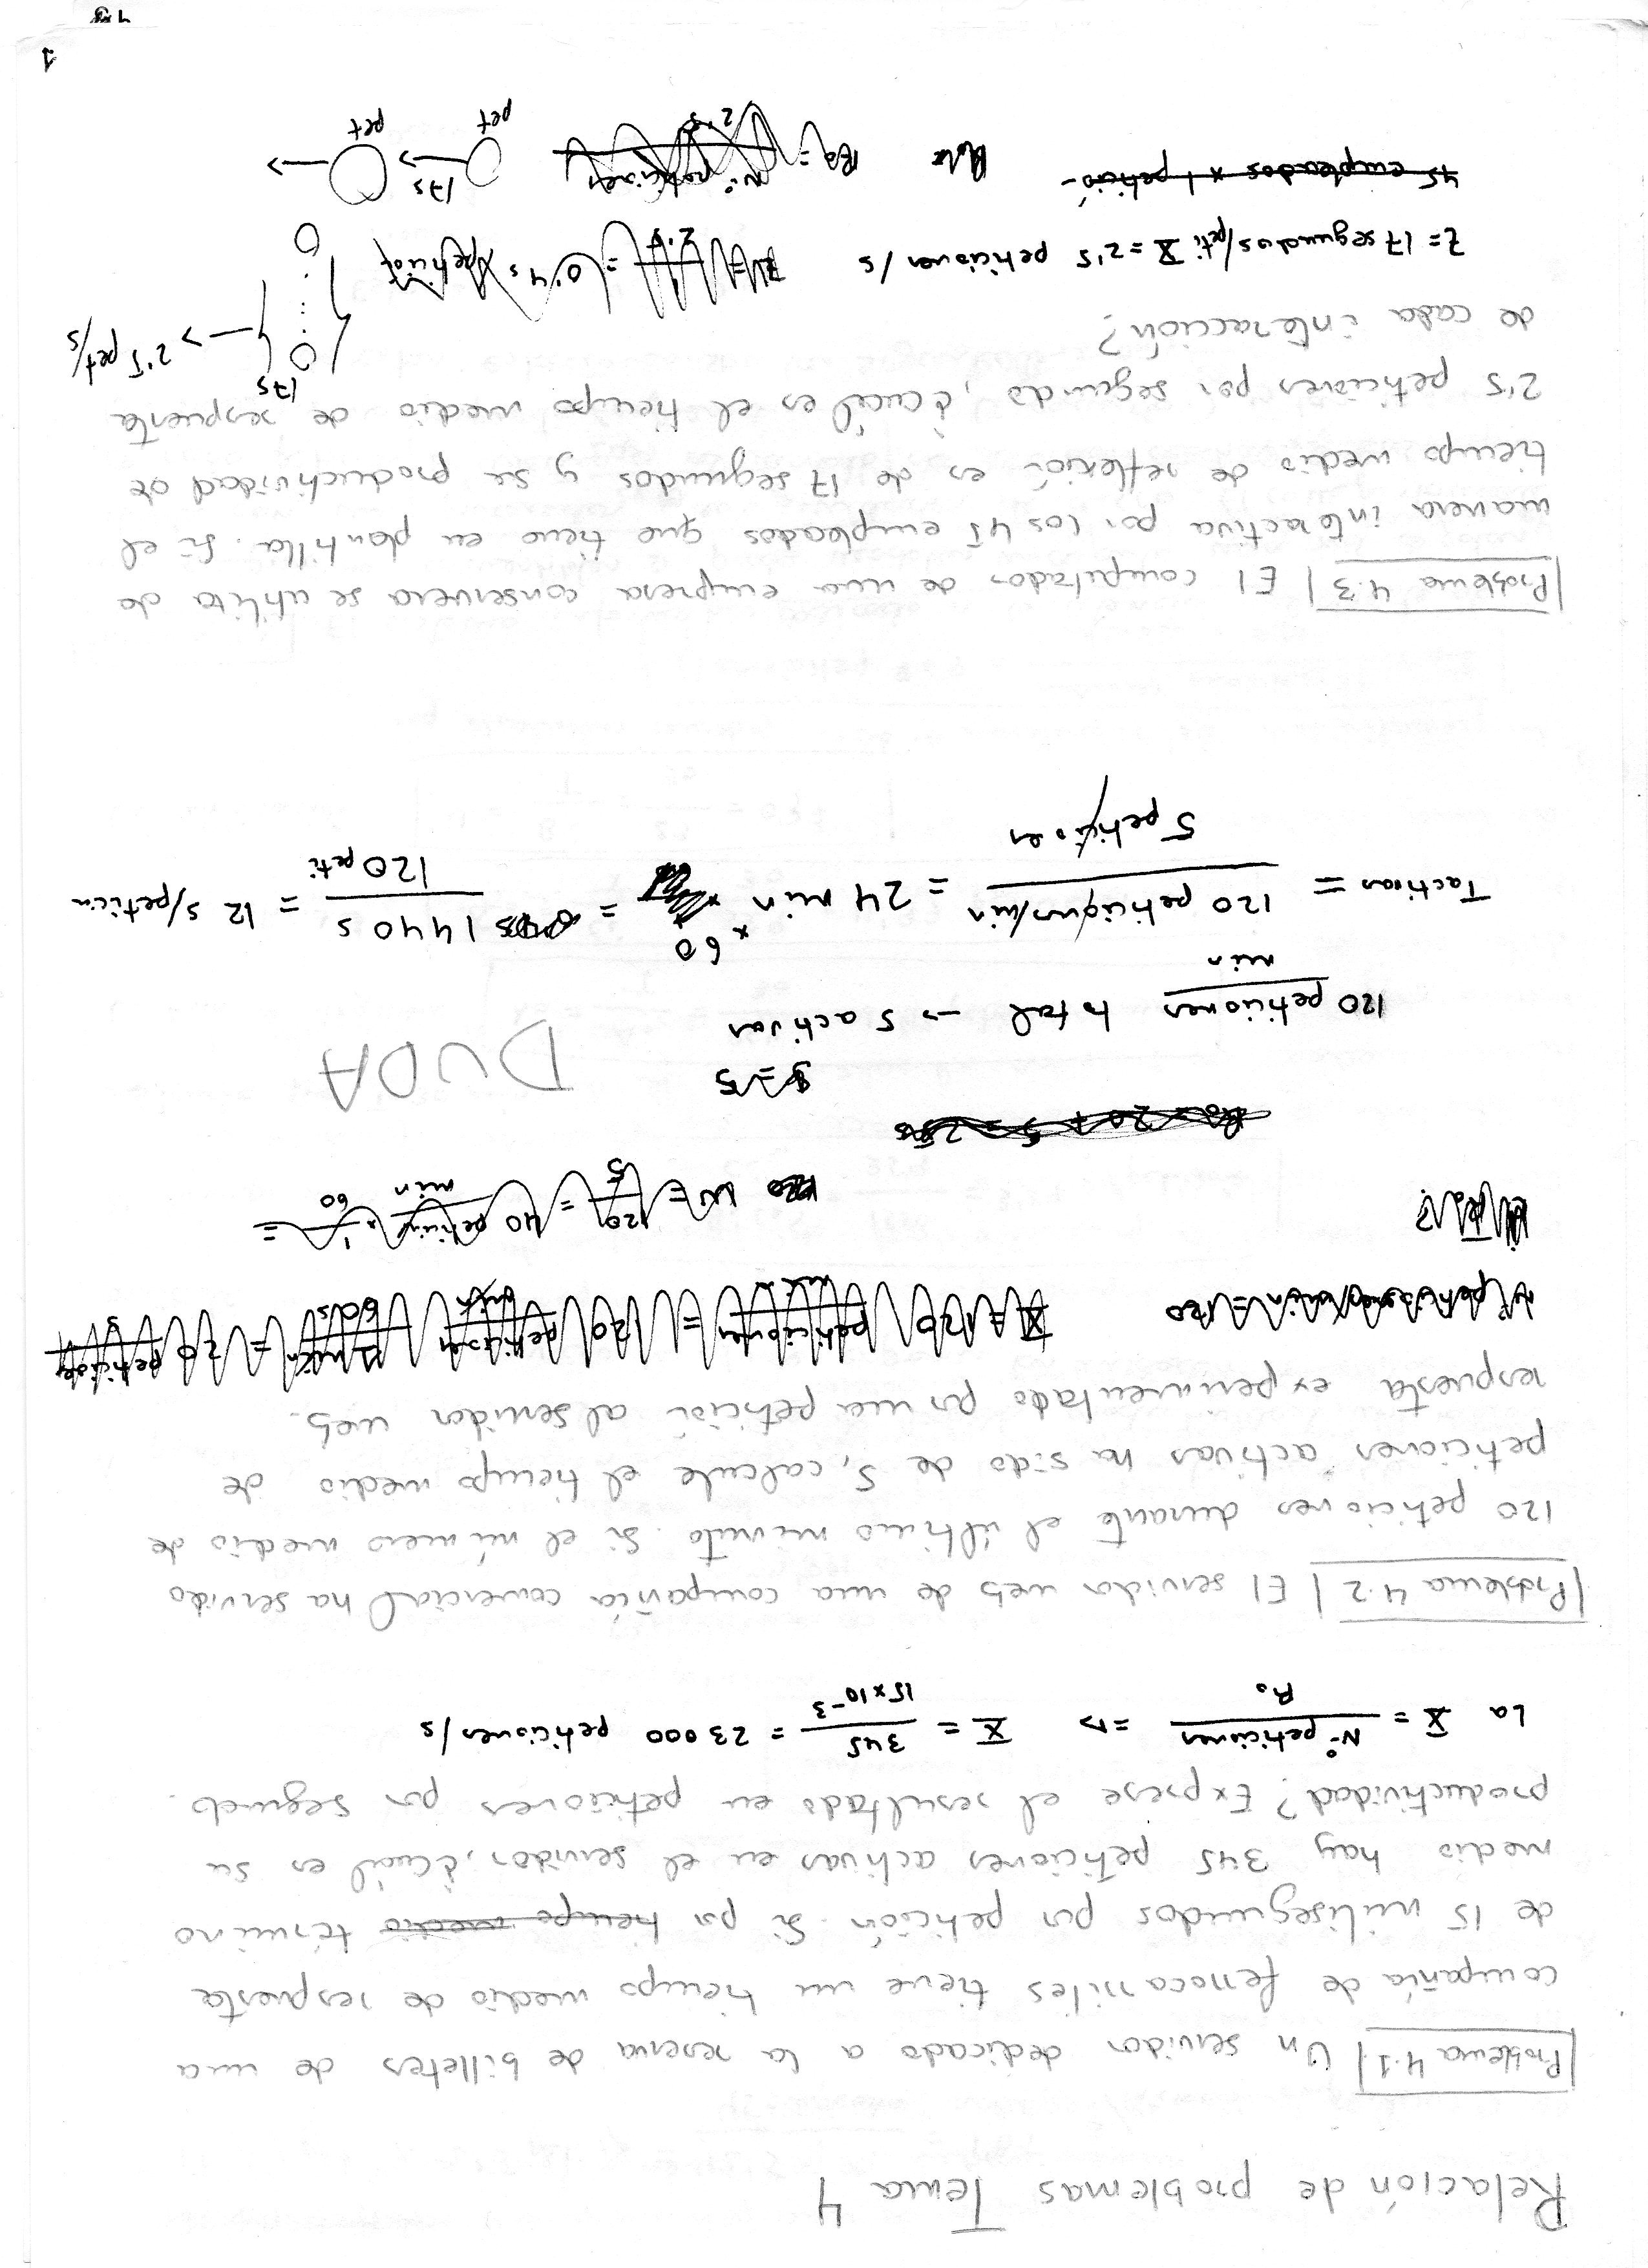 Relación de problemas Tema 4
Problema 4.1 Un servidor dedicado a la reserva de billetes de una
compañía de ferrocarriles tiene un tiempo medio de respuesta
de 15 milisegundos por petición. Si por tiempo medio término
medio hay 345 peticiones activas en el servidor, ¿cuál es su
productividad? Exprese el resultado en peticiones por segundo.
La X = Nº peticiones / R₀ => X = 345 / 15x10⁻³ = 23000 peticiones/s
Problema 4.2 El servidor web de una compañía comercial ha servido
120 peticiones durante el último minuto. Si el número medio de
peticiones activas ha sido de 5, calcule el tiempo medio de
respuesta experimentado por una petición al servidor web.
DUDA
120 peticiones/min total -> 5 activas
Tactivas = 120 peticiones/min / 5 peticiones = 24 min x 60 = 1440 s / 120 peti = 12 s/petición
Problema 4.3 El computador de una empresa conservera se utiliza de
manera interactiva por los 45 empleados que tiene en plantilla. Si el
tiempo medio de reflexión es de 17 segundos y su productividad de
2'5 peticiones por segundo, ¿cuál es el tiempo medio de respuesta
de cada interacción?
17s
-> 2'5 pet/s
Z = 17 segundos/peti X = 2'5 peticiones/s
45 empleados x 1 petición
17s
pet pet
1